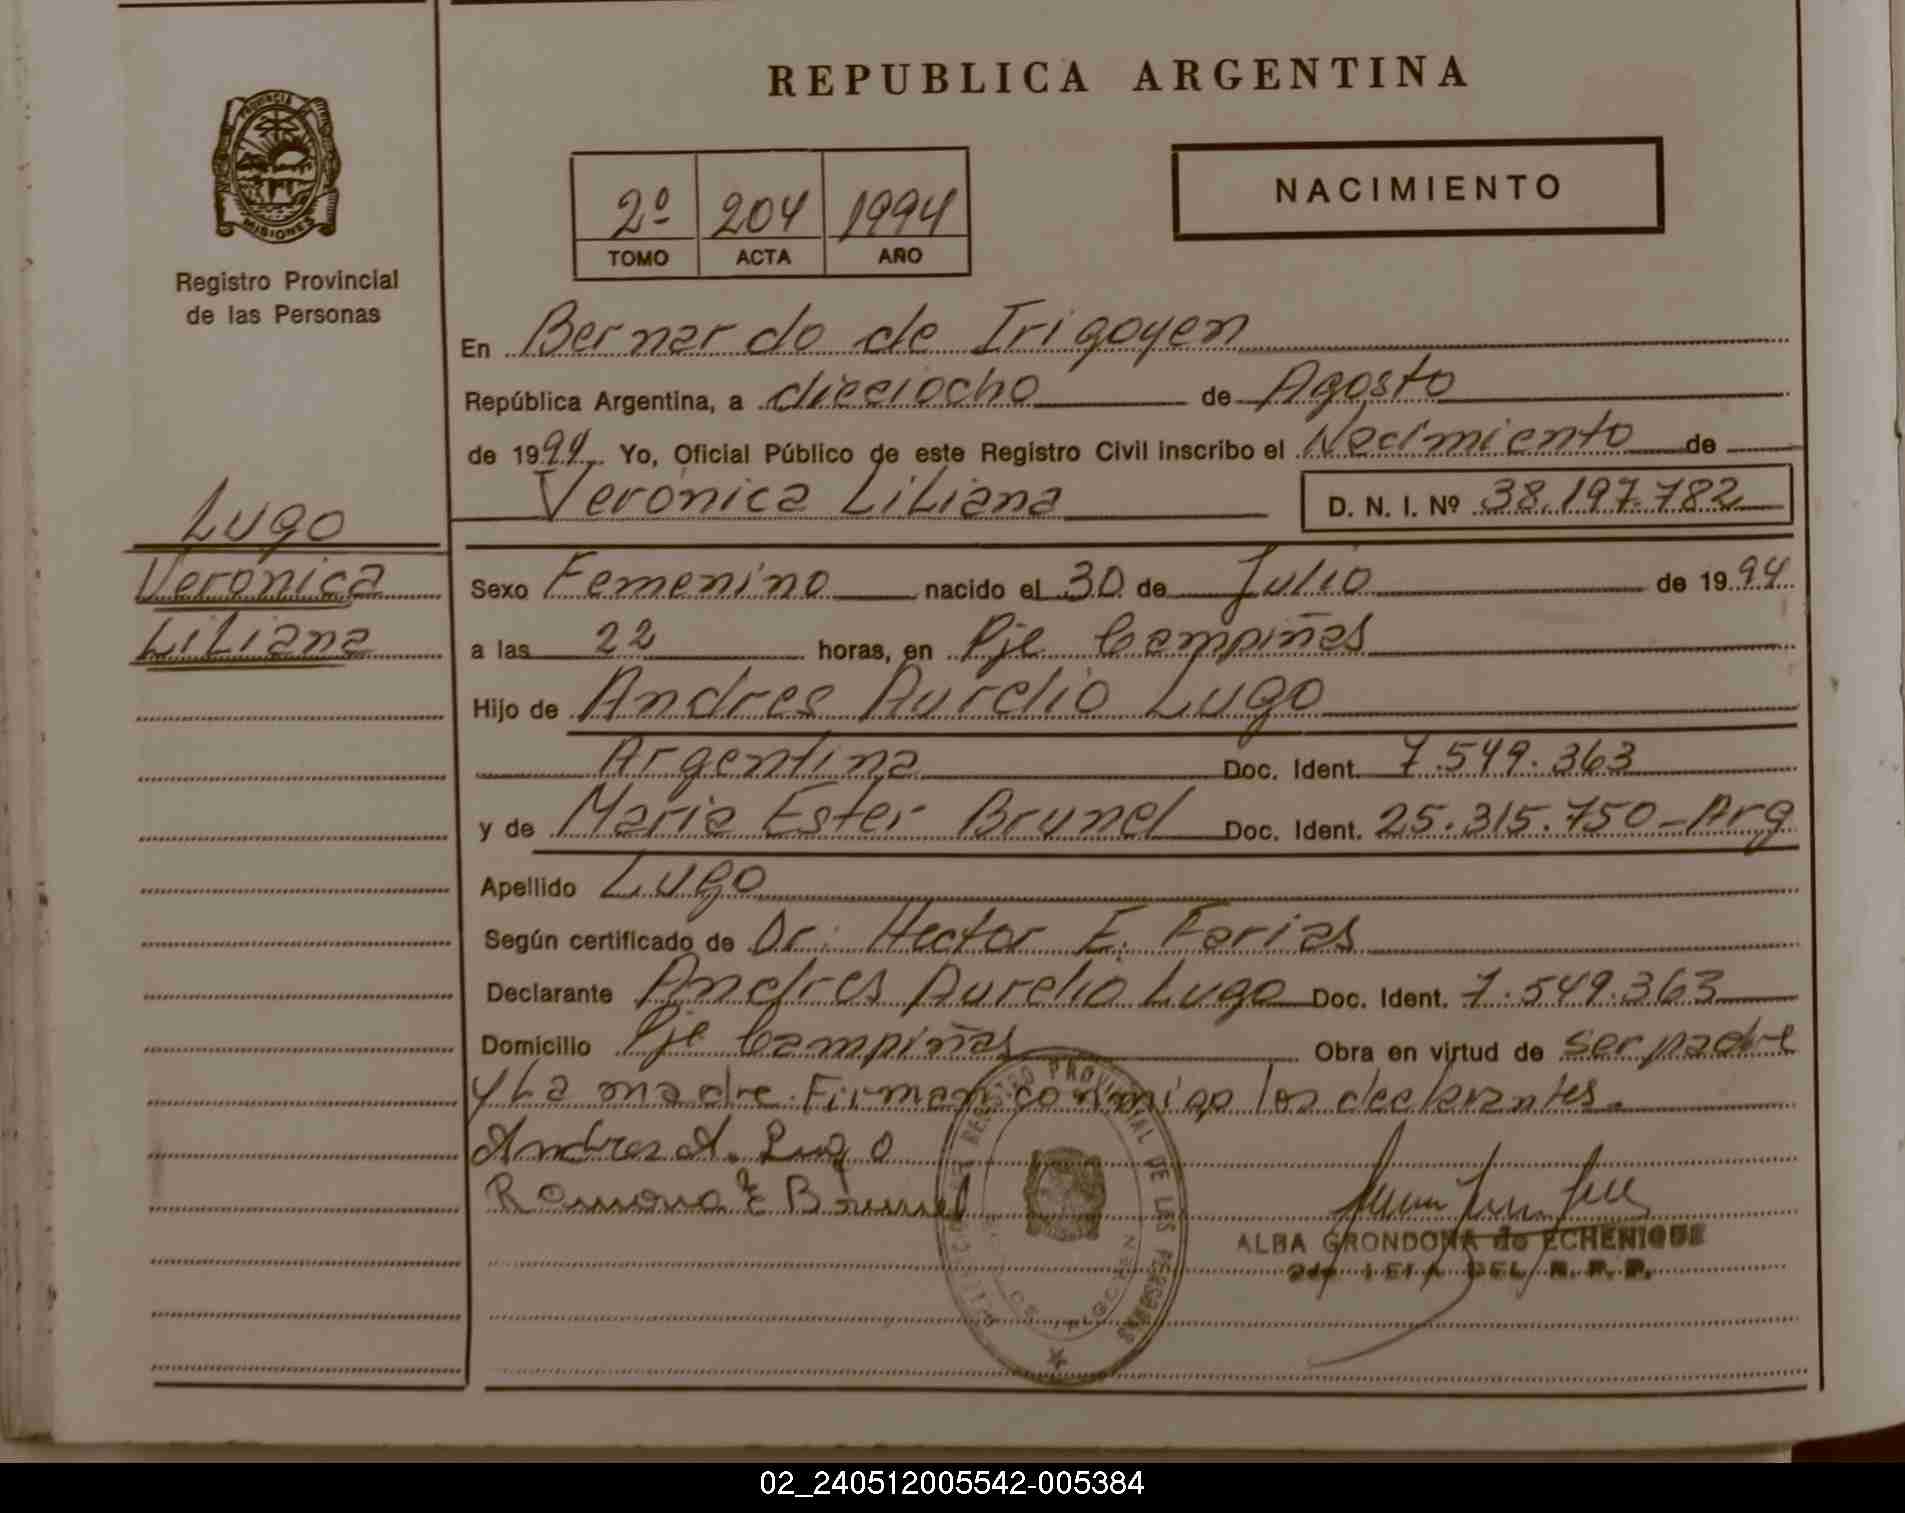 REPUBLICA ARGENTINA
PROVINCIA DE MISIONES
Registro Provincial
de las Personas
2º 204 1994
TOMO ACTA AÑO
NACIMIENTO
En Bernardo de Irigoyen
República Argentina, a dieciocho de Agosto
de 1994 Yo, Oficial Público de este Registro Civil inscribo el Nacimiento de
Verónica Liliana D. N. I. Nº 38.197.782
Lugo
Verónica
Liliana
Sexo Femenino nacido el 30 de Julio de 1994
a las 22 horas, en Pje Campiñas
Hijo de Andres Aurelio Lugo
Argentina Doc. Ident. 7.549.363
y de Maria Ester Brunel Doc. Ident. 25.315.750 - Arg
Apellido Lugo
Según certificado de Dr. Hector E. Farias
Declarante Andres Aurelio Lugo Doc. Ident. 7.549.363
Domicilio Pje Campiñas Obra en virtud de ser padre
y La madre. Firman conmigo los declarantes.
Andres A. Lugo
Ramona E Brunel
REGISTRO PROVINCIAL DE LAS PERSONAS
DE IRIGOYEN
ALBA GRONDONA de ECHENIQUE
DEL R. P. P.
02_240512005542-005384